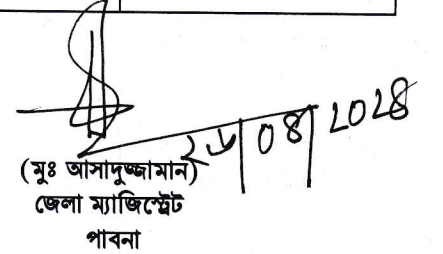 ২৬|০৪|২০২৪
(মুঃ আসাদুজ্জামান)
জেলা ম্যাজিস্ট্রেট
পাবনা